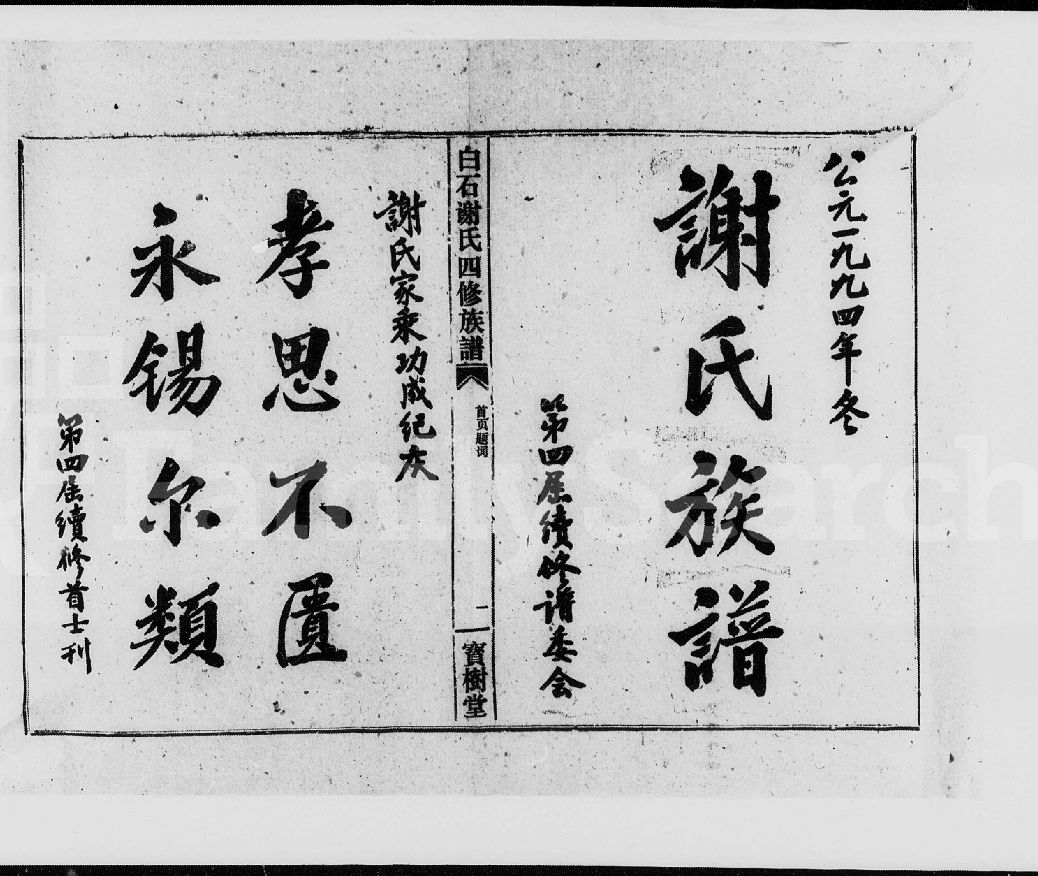 公元一九九四年冬
謝氏族譜
第四屆續修谱委会
白石谢氏四修族譜
首页题词
二
寶樹堂
謝氏家乘功成纪庆
孝思不匱
永锡尔類
第四届續修首士刊
FamilySearch